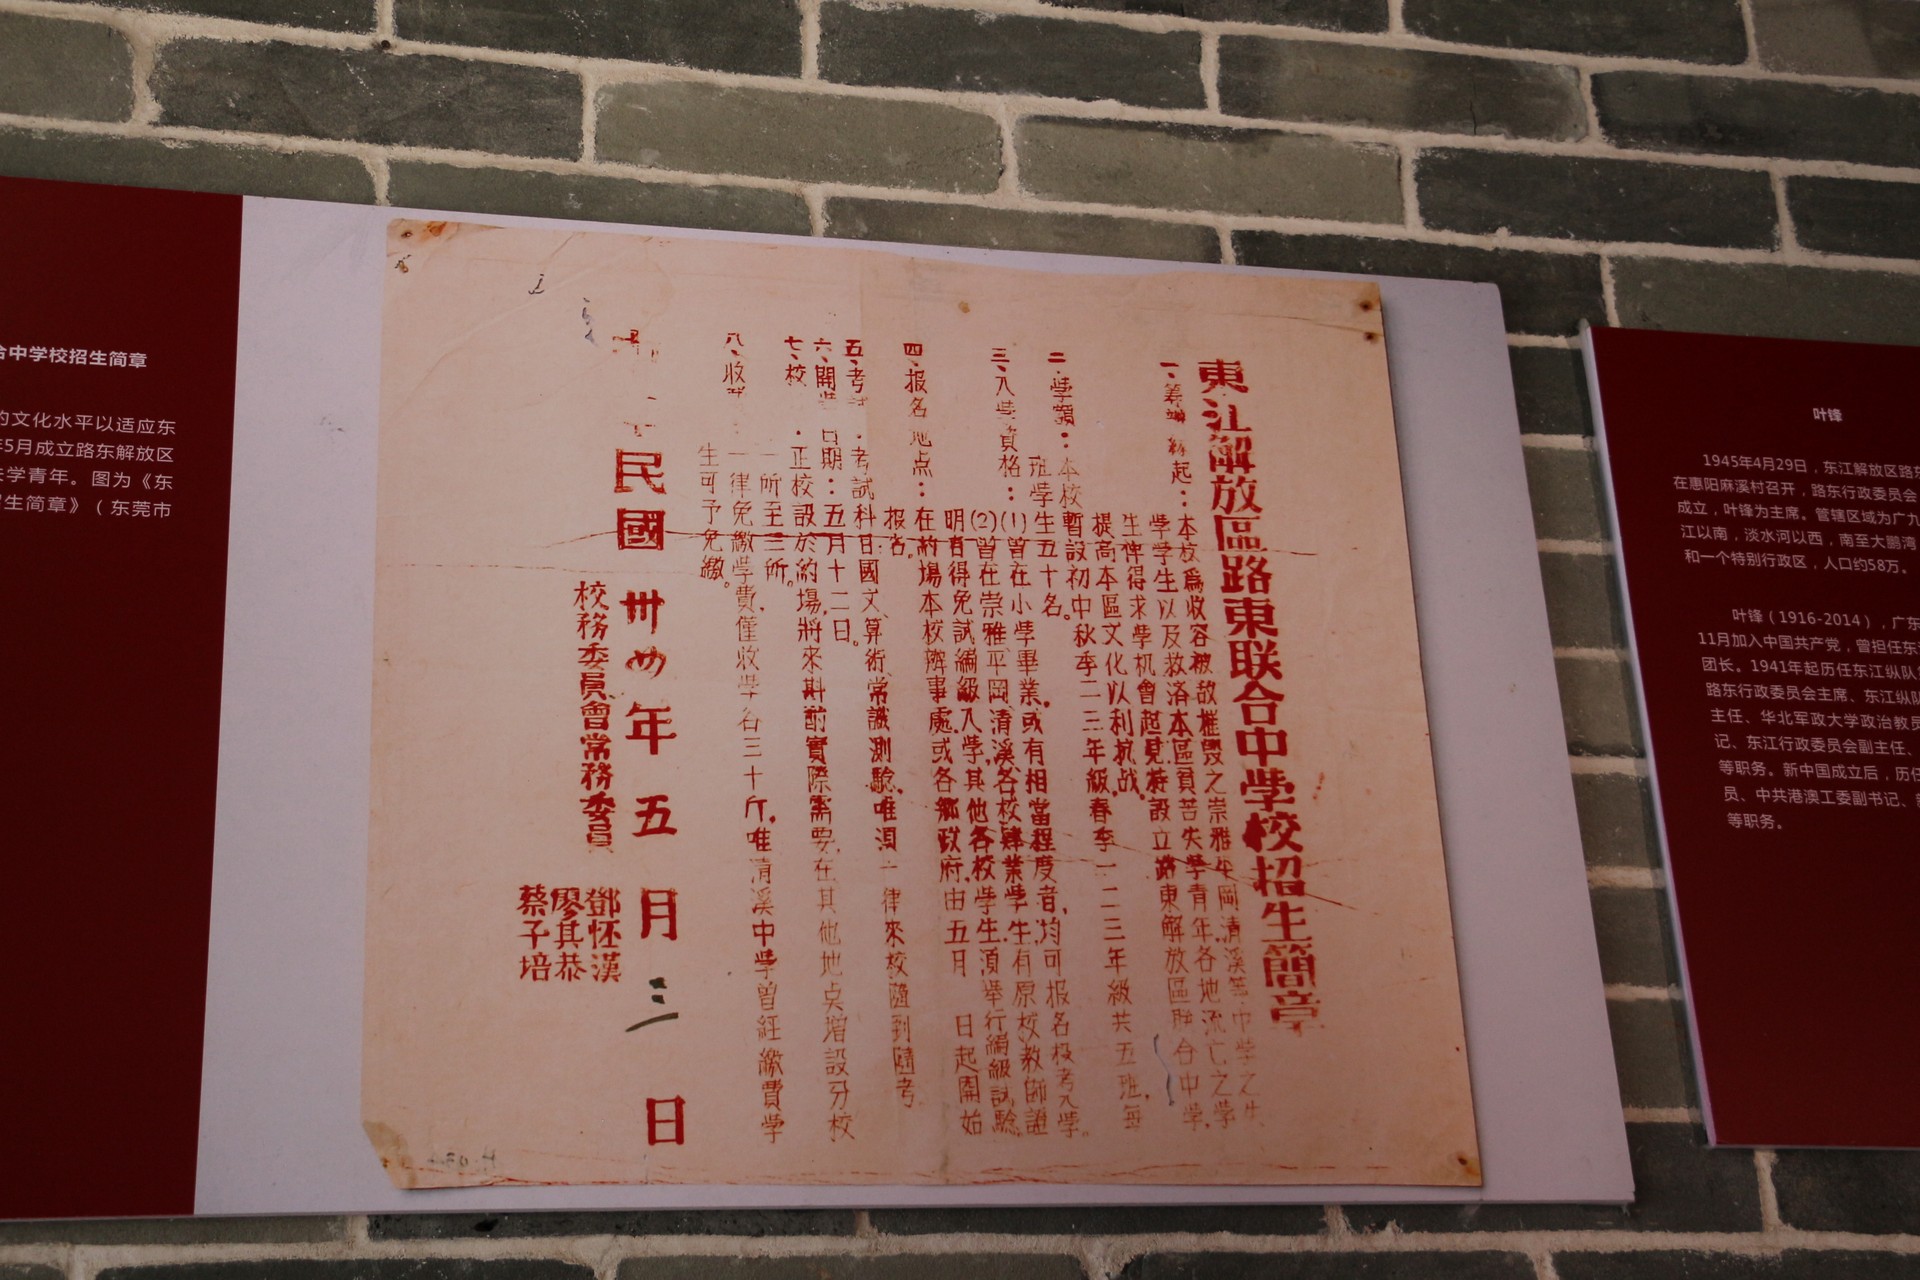 合中学校招生简章
的文化水平以适应东
年5月成立路东解放区
失学青年。图为《东
招生简章》（东莞市
東江解放區路東联合中学校招生簡章
一、籌辦緣起：本校爲收容被敌摧毁之崇雅平岡清溪等中学之生
学学生以及救済本區貧苦失学青年各地流亡之学
生俾得求学机會起見特設立路東解放區联合中学，
提高本區文化以利抗战。
二、學額：本校暫設初中秋季二三年級，春季一二三年級共五班，每
班学生五十名。
三、入学資格：(1)曾在小学畢業，或有相當程度者，均可报名投考入学。
(2)曾在崇雅平岡清溪各校肄業学生有原校教師證
明者得免試編級入学，其他各校学生須举行編級試驗。
四、报名地点：在約場本校辦事處或各鄉政府，由五月 日起開始
报名。
五、考試：考試科目國文、算術、常識測驗，唯須一律來校隨到隨考
六、開学日期：五月十二日。
七、校 ：正校設於約場，將來斟酌實際需要，在其他地点增設分校
一所至三所。
八、收 一律免繳学費，僅收学谷三十斤，唯清溪中学曾経繳費学
生可予免繳。
民國卅四年五月三日
校務委員會常務委員
鄧怀漢
廖其恭
蔡子培
叶锋
1945年4月29日，东江解放区路东
在惠阳麻溪村召开，路东行政委员会
成立，叶锋为主席。管辖区域为广九
江以南，淡水河以西，南至大鹏湾
和一个特别行政区，人口约58万。
叶锋（1916-2014），广东
11月加入中国共产党，曾担任东
团长。1941年起历任东江纵队
路东行政委员会主席、东江纵队
主任、华北军政大学政治教员
记、东江行政委员会副主任、
等职务。新中国成立后，历任
员、中共港澳工委副书记、
等职务。